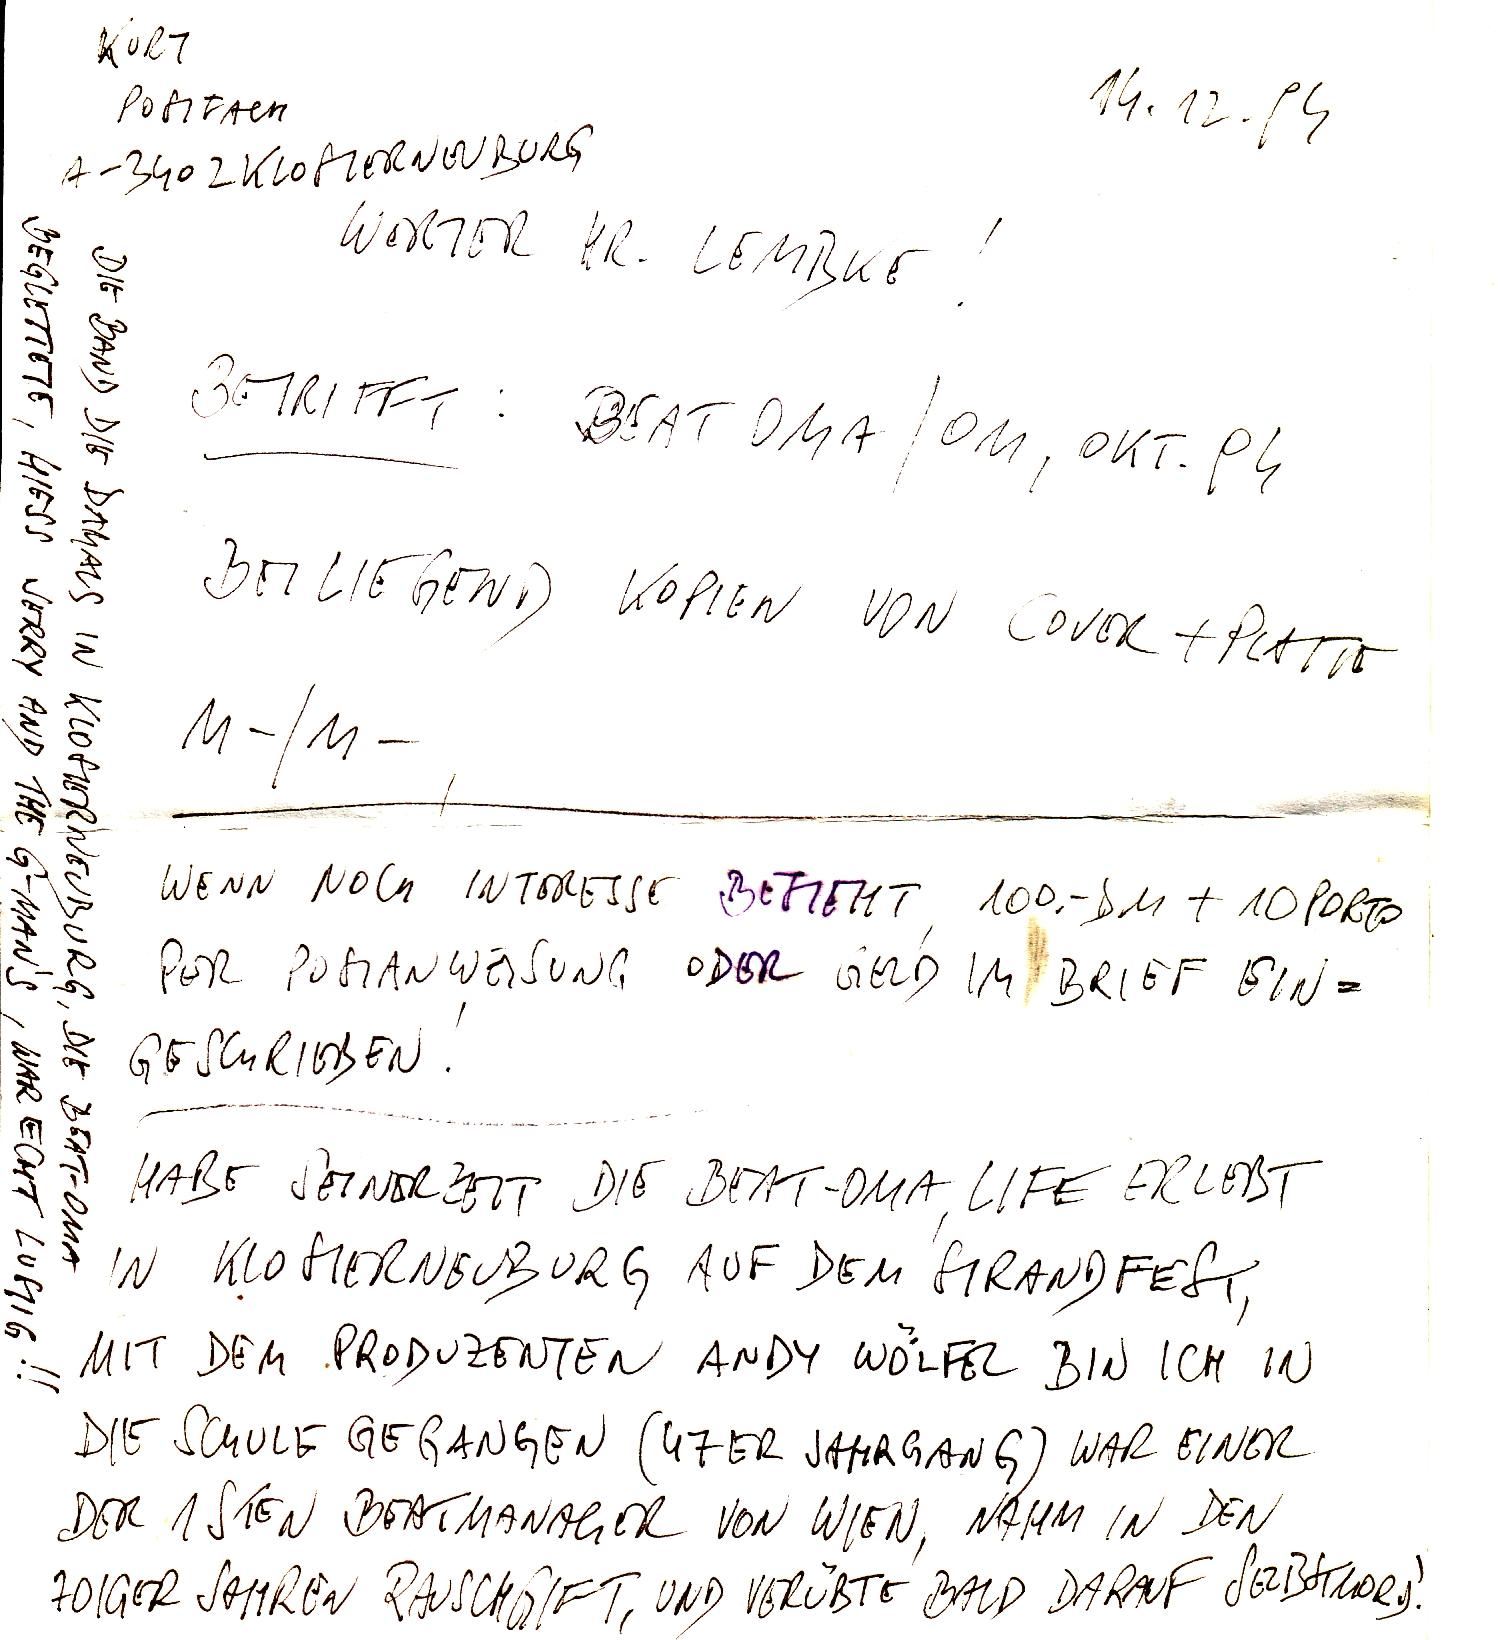 KURT
POSTFACH
A-3402 KLOSTERNEUBURG
14.12.94
WERTER HR. LEMBKE!
BETRIFFT: BEAT OMA/OM, OKT. 94
BEILIEGEND KOPIEN VON COVER + PLATTE
M-/M-,
WENN NOCH INTERESSE BESTEHT, 100.-DM + 10 PORTO
PER POSTANWEISUNG ODER GELD IM BRIEF EIN=
GESCHRIEBEN!
HABE SEINERZEIT DIE BEAT-OMA, LIFE ERLEBT
IN KLOSTERNEUBURG AUF DEM STRANDFEST,
MIT DEM PRODUZENTEN ANDY WÖLFEL BIN ICH IN
DIE SCHULE GEGANGEN (47ER JAHRGANG) WAR EINER
DER 1STEN BEATMANAGER VON WIEN, NAHM IN DEN
70IGER JAHREN RAUSCHGIFT, UND VERÜBTE BALD DARAUF SELBSTMORD!
DIE BAND DIE DAMALS IN KLOSTERNEUBURG, DIE BEAT-OMA
BEGLEITETE, HIESS JERRY AND THE G-MAN'S, WAR ECHT LUSTIG!!